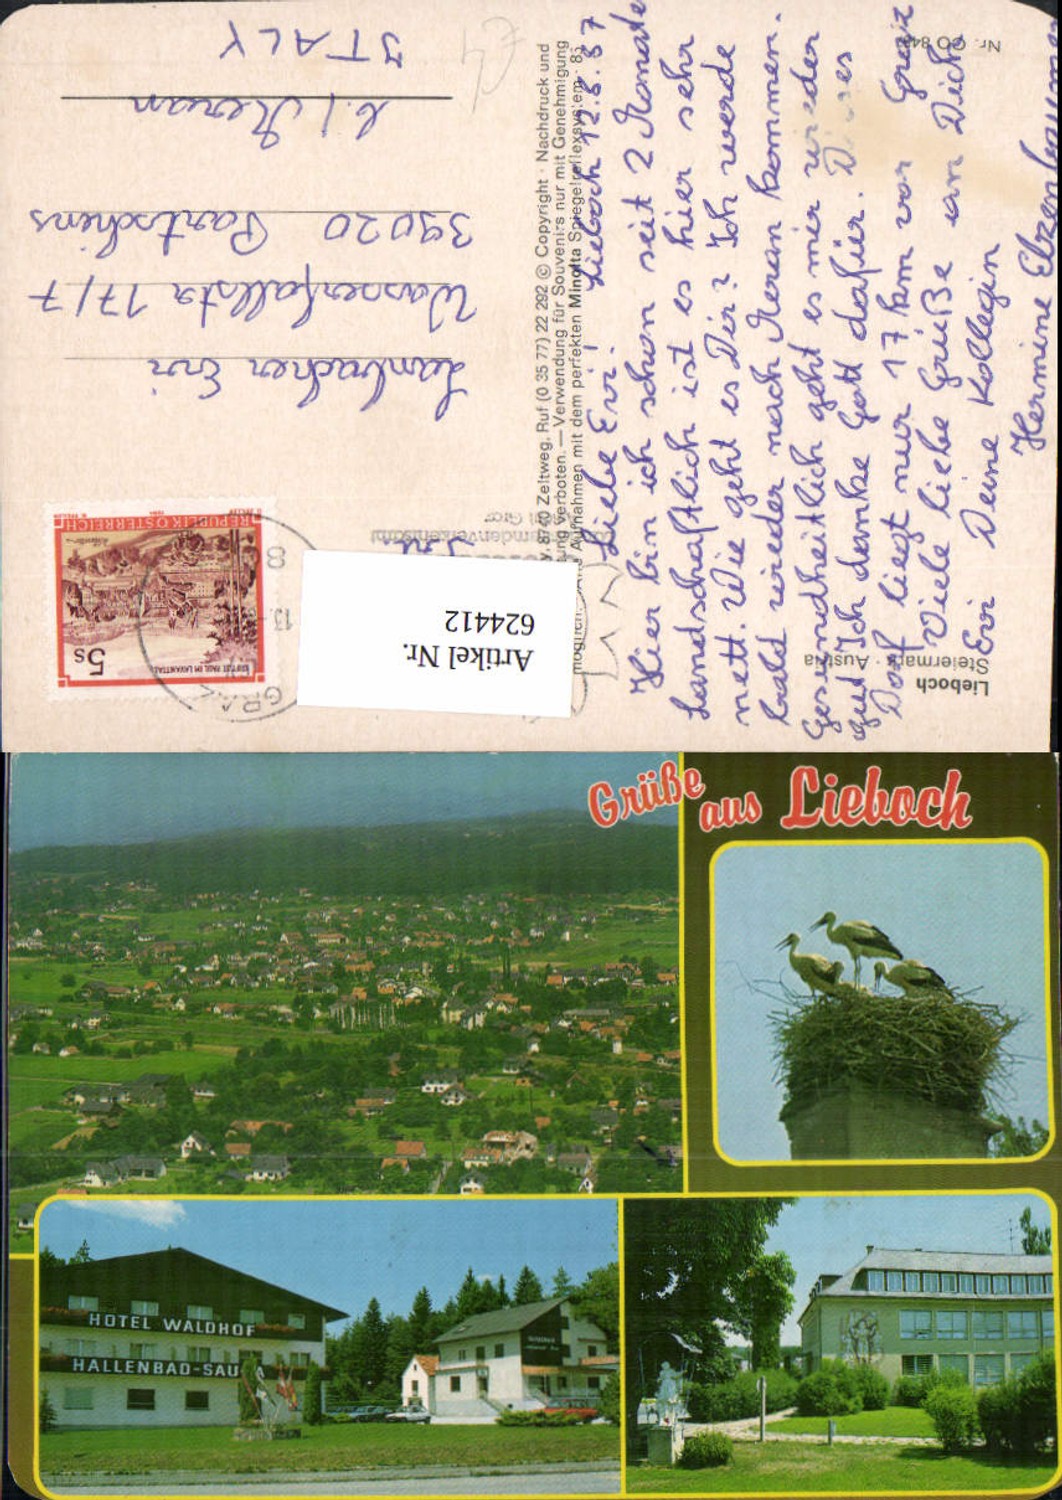 Lieboch 12.8.87
Liebe Evi!
Hier bin ich schon seit 2 Monate
Landschaftlich ist es hier sehr
nett. Wie geht es Dir? Ich werde
bald wieder nach Meran kommen.
Gesundheitlich geht es mir wieder
gut Ich danke Gott dafür. Dieses
Dorf liegt nur 17 km vor Graz
Viele liebe Grüße an Dich
Evi Deine Kollegin
Hermine
Lieboch
Steiermark · Austria
Nr. CO
8740 Zeltweg, Ruf (0 35 77) 22 292 © Copyright · Nachdruck und
verboten. — Verwendung für Souvenirs nur mit Genehmigung
möglich. Aufnahmen mit dem perfekten Minolta Spiegelreflexsystem
REPUBLIK ÖSTERREICH
STIFT ST. PAUL IM LAVANTTAL
5s
GRAZ
13.
Artikel Nr.
624412
Evi
Wasserfallstr 17/7
39020 Partschins
b./ Meran
ITALY
Grüße aus Lieboch
HOTEL WALDHOF
HALLENBAD-SAUNA